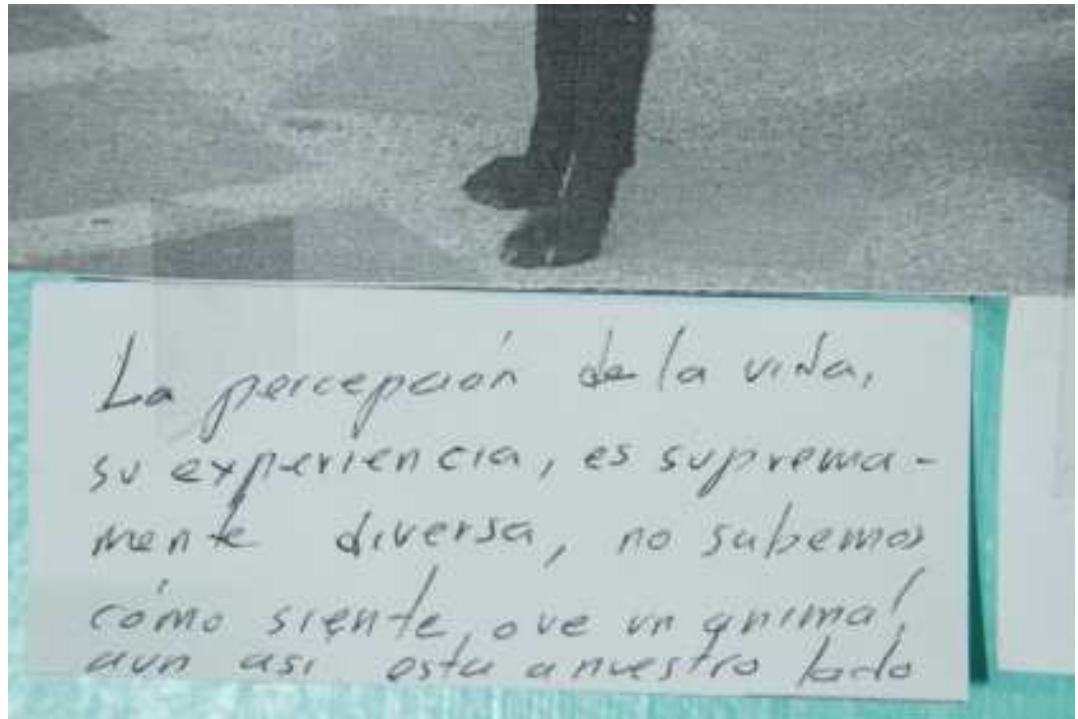 La percepción de la vida,
su experiencia, es suprema-
mente diversa, no sabemos
cómo siente, ove un animal,
aun asi esta a nuestro lado